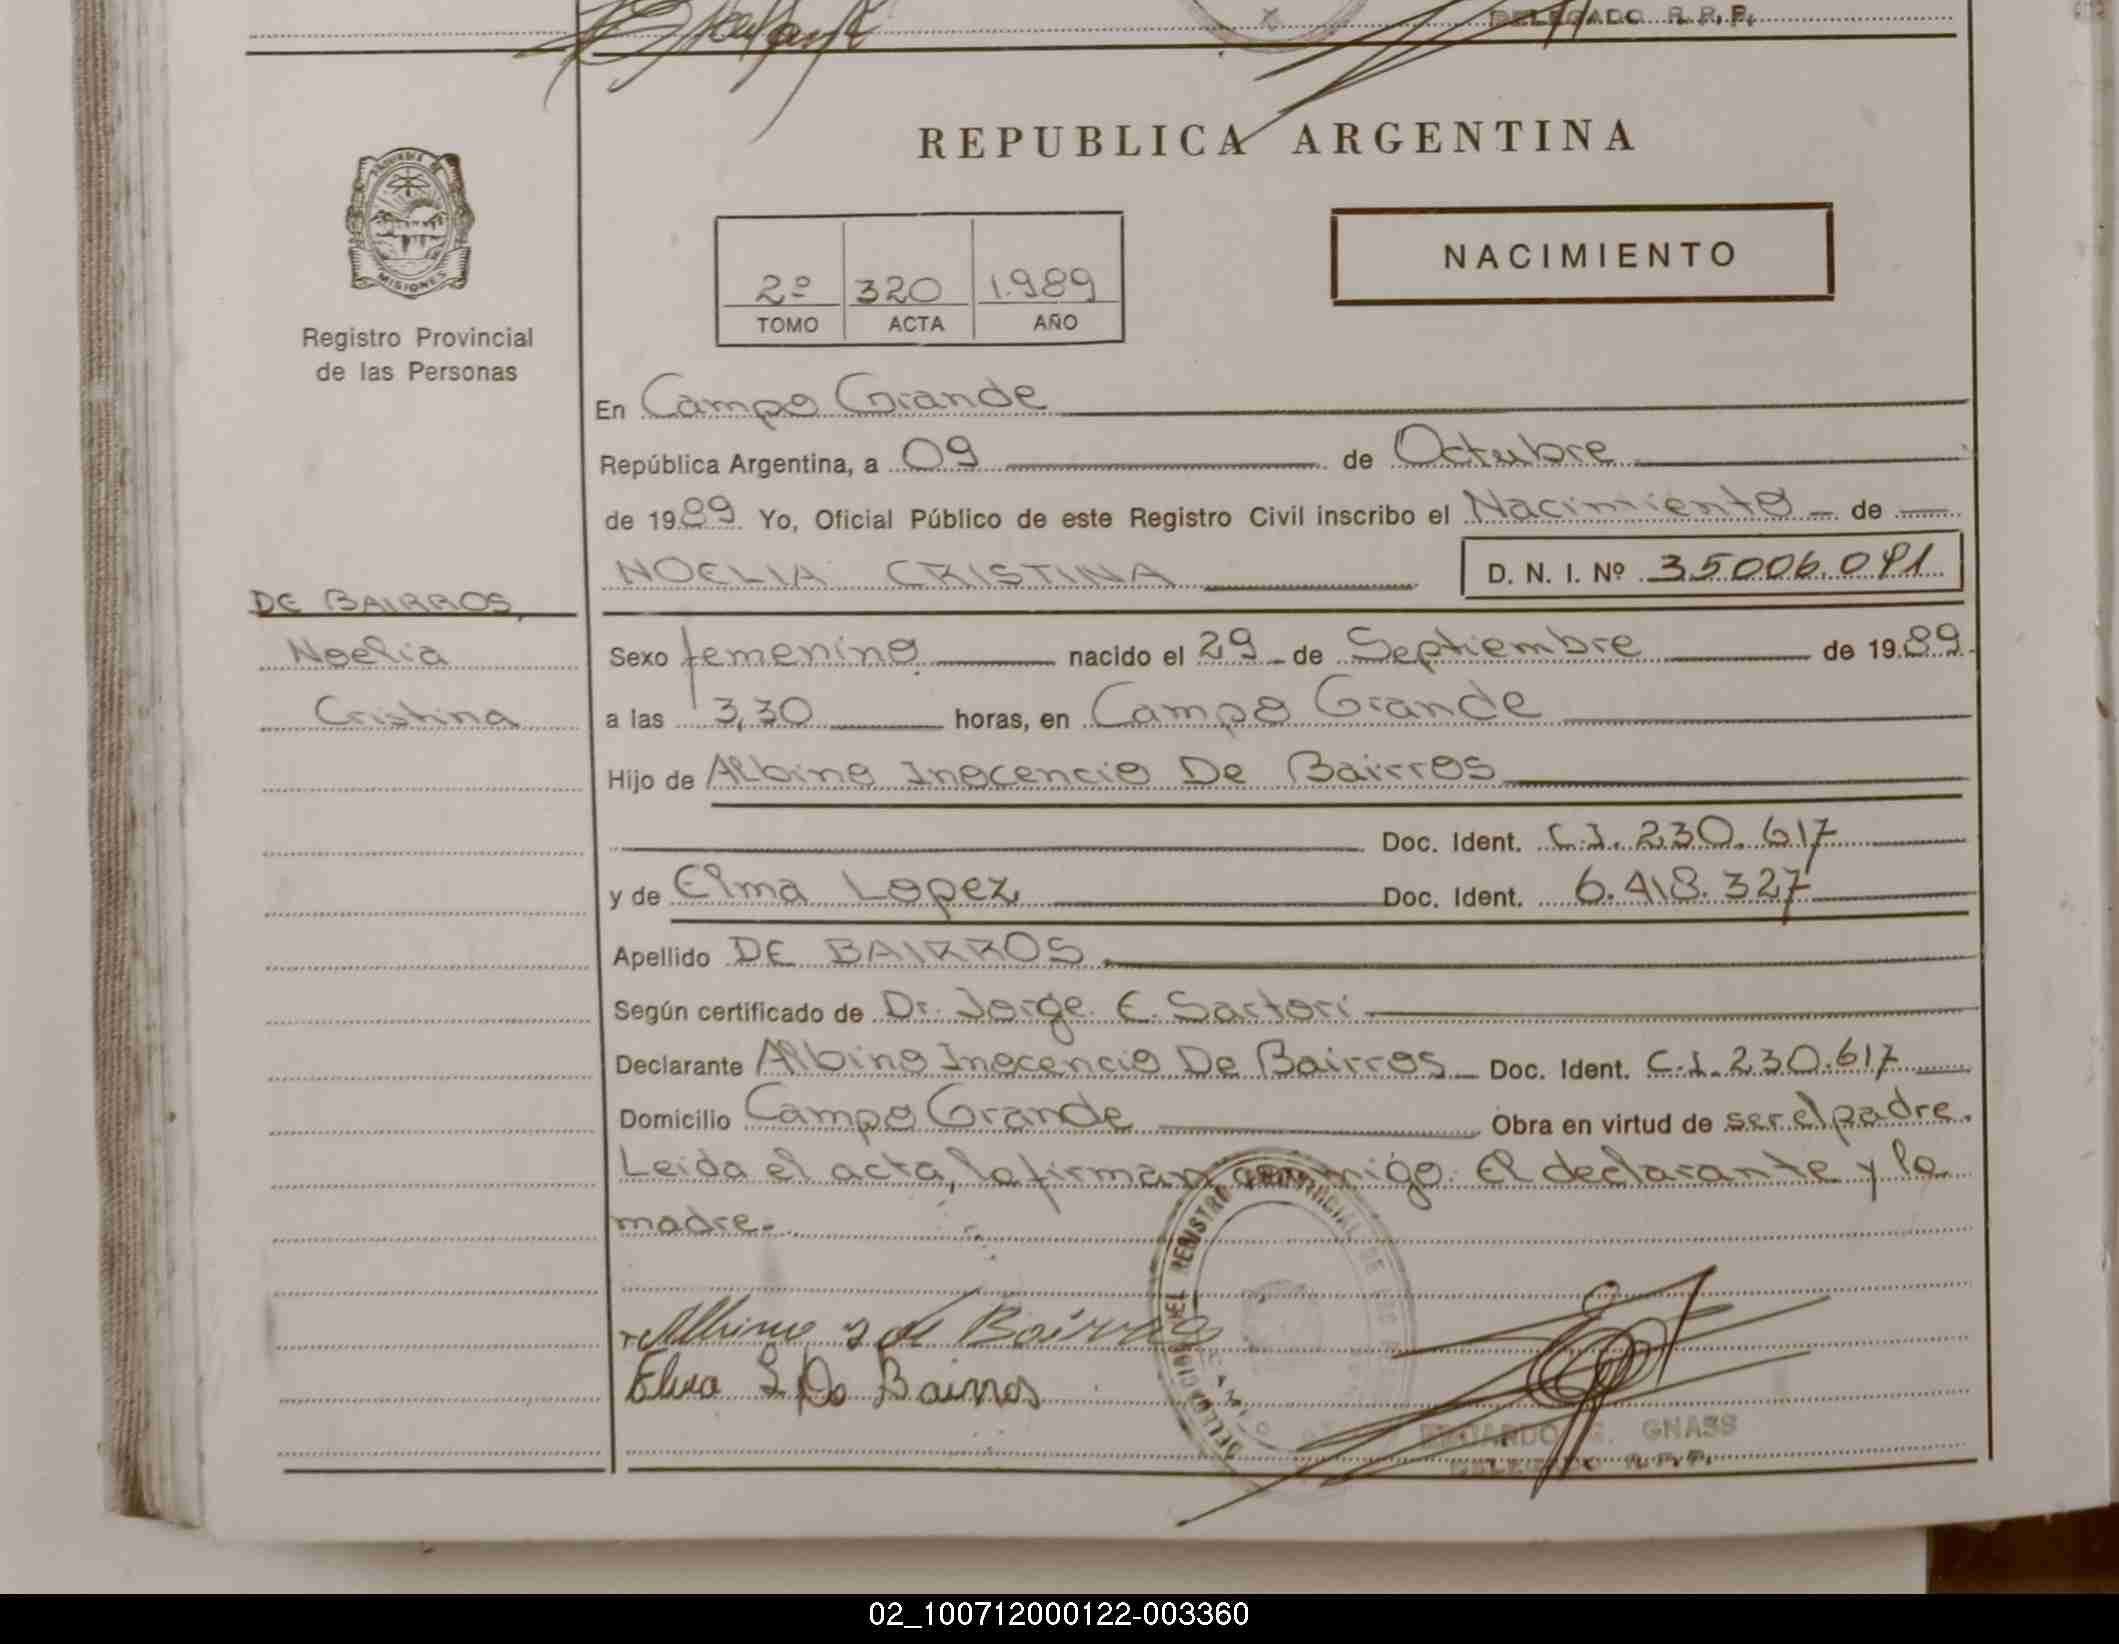 DELEGADO R.P.P.
REPUBLICA ARGENTINA
PROVINCIA DE
MISIONES
Registro Provincial
de las Personas
NACIMIENTO
2º 320 1.989
TOMO ACTA AÑO
En Campo Grande
República Argentina, a 09 de Octubre
de 1989 Yo, Oficial Público de este Registro Civil inscribo el Nacimiento de
NOELIA CRISTINA D. N. I. Nº 35006.091
DE BAIRROS,
Noelia
Cristina
Sexo femenino nacido el 29 de Septiembre de 1989
a las 3,30 horas, en Campo Grande
Hijo de Albino Inocencio De Bairros
Doc. Ident. C.I. 230.617
y de Elma Lopez Doc. Ident. 6.418.327
Apellido DE BAIRROS
Según certificado de Dr. Jorge E. Sartori
Declarante Albino Inocencio De Bairros Doc. Ident. C.I. 230.617
Domicilio Campo Grande Obra en virtud de ser el padre.
Leida el acta, la firman conmigo. El declarante y la
madre.
Albino I de Bairros
Elma L De Bairros
DELEGACION DEL REGISTRO PROVINCIAL DE LAS
EDUARDO GNASS
DELEGADO R.P.P.
02_100712000122-003360